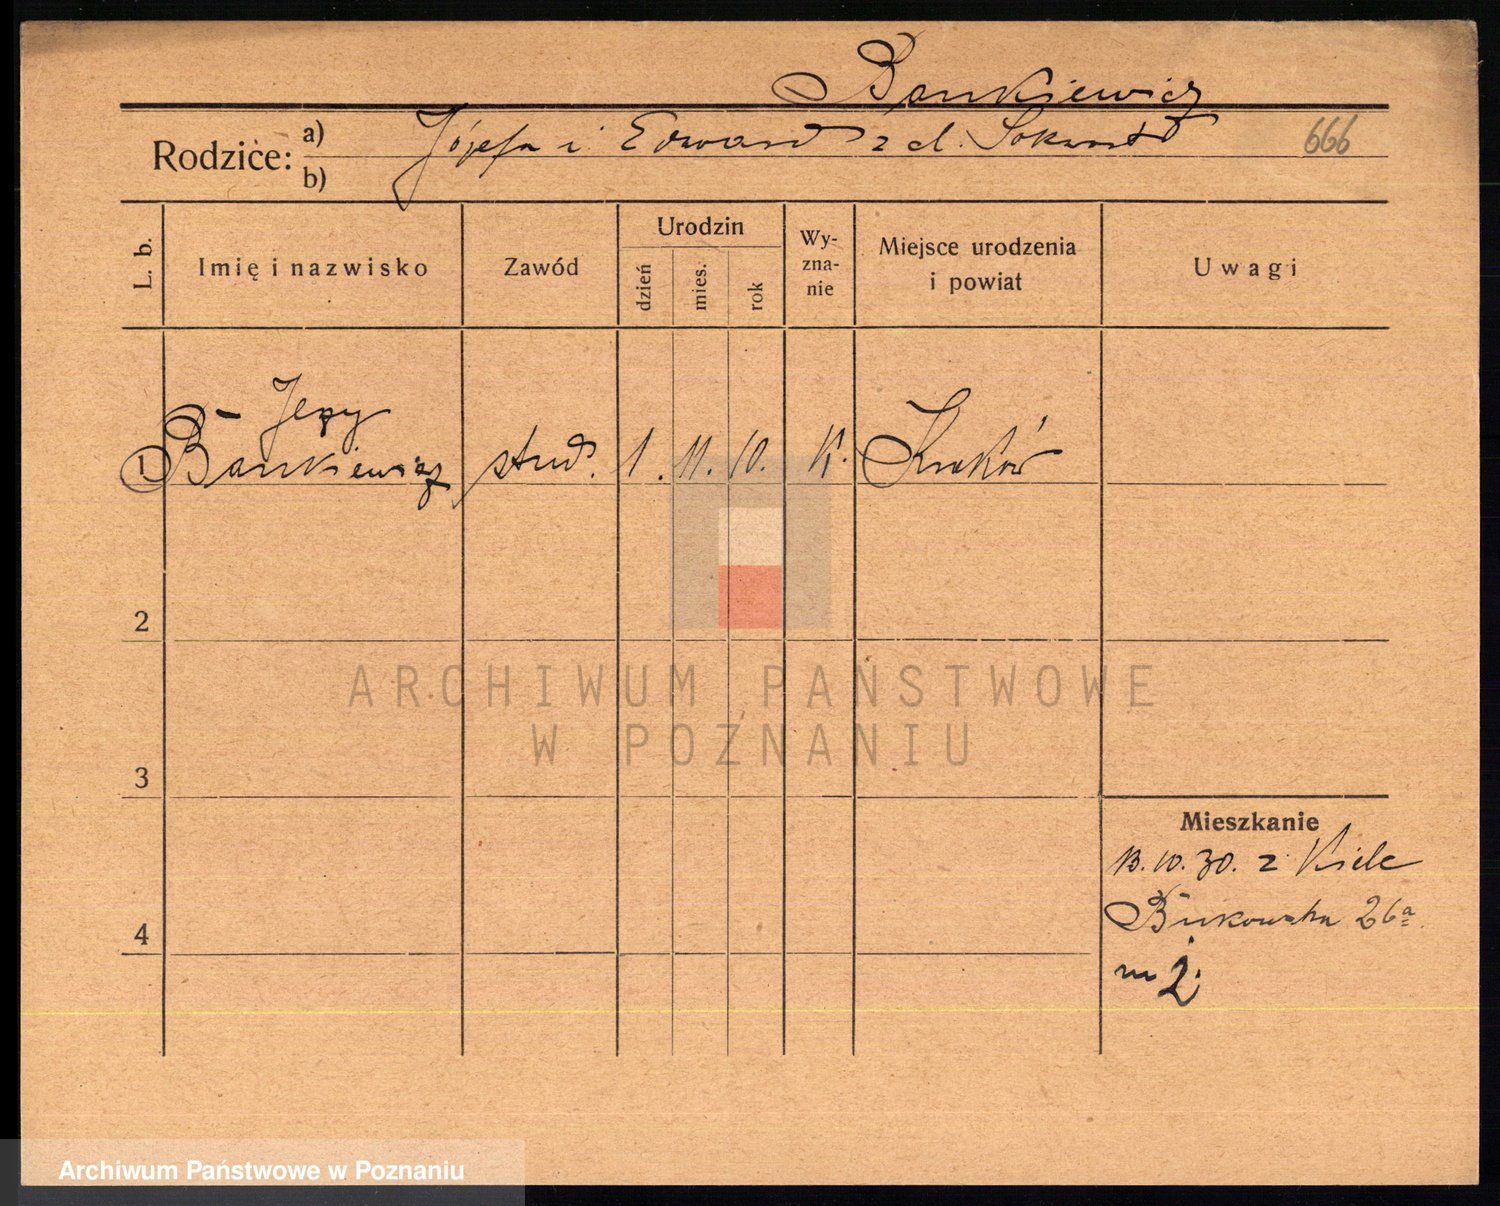 Bankiewicz
Rodzice: a) Józefa i Edward z d.
b)
666
L. b.
Imię i nazwisko
Zawód
Urodzin
dzień
mies.
rok
Wy-
zna-
nie
Miejsce urodzenia
i powiat
Uwagi
Jerzy
1 Bankiewicz stud. 1. 11. 10. K. Kraków
2
3
4
Mieszkanie
13.10.30. z Kielc
Bukowska 26a
m 2.
ARCHIWUM PAŃSTWOWE
W POZNANIU
Archiwum Państwowe w Poznaniu